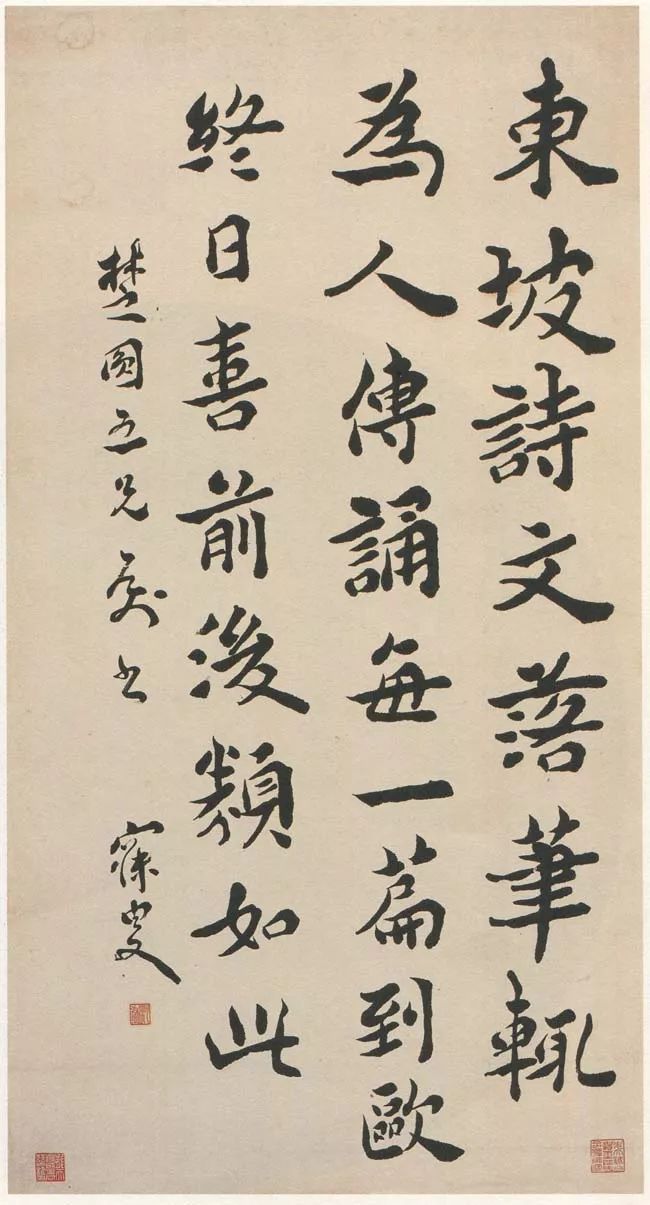 東坡詩文落筆輒
為人傳誦每一篇到歐
終日喜前後類如此
楚園五兄屬書
寐叟